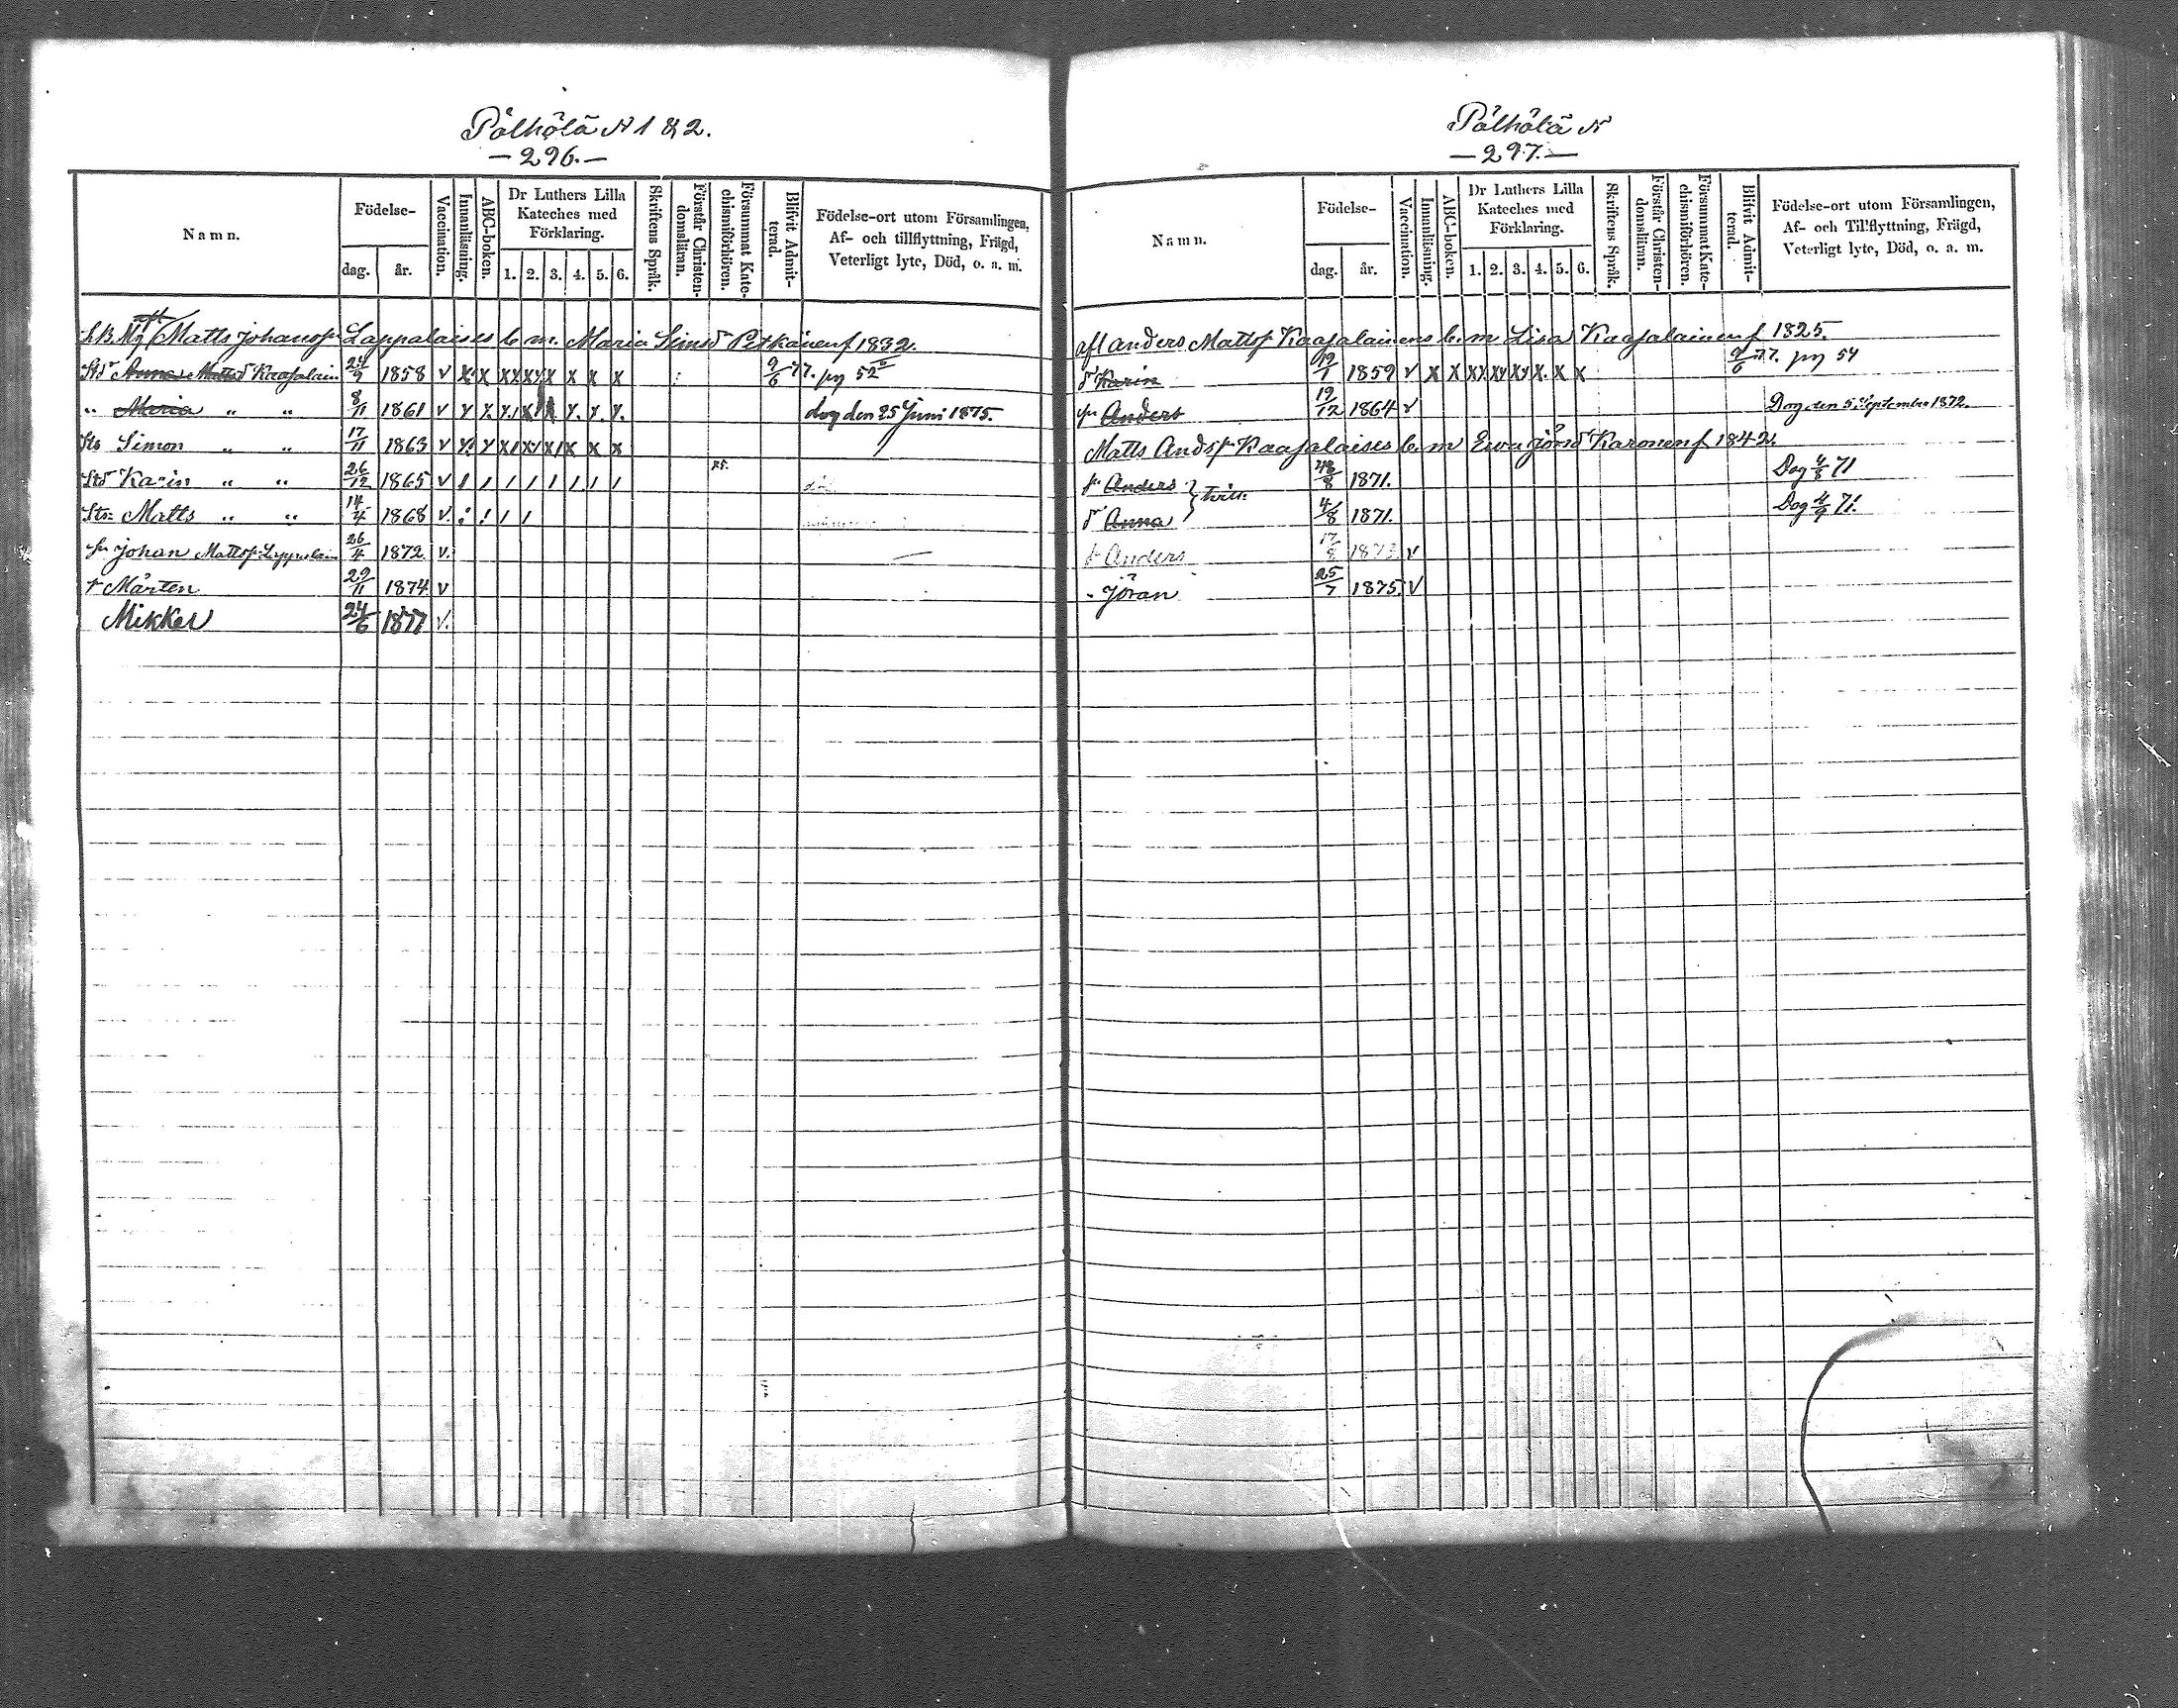 Pölhölä N 1 & 2.
— 296. —
Namn.
Födelse-
dag.
år.
Vaccination.
Innanläsning.
ABC-boken.
Dr Luthers Lilla
Kateches med
Förklaring.
1. 2. 3. 4. 5. 6.
Skriftens Språk.
Förstår Christen-
domsläran.
Försummat Kate-
chismiförhören.
Blifvit Admit-
terad.
Födelse-ort utom Församlingen,
Af- och tillflyttning, Frägd,
Veterligt lyte, Död, o. a. m.
Matts Johansson Lappalaises b. m. Maria Simsd Pitkänen f 1832.
Std Anna Mattsd Kaasalain 24/9 1858 v x x xx xx x x x x 9/6 77. pg 52
" Maria " " 8/11 1861 v dog den 25 Juni 1875.
Sts Simon " " 17/11 1863 v
Std Karin " " 26/12 1865 v / / / / / / / /
Sts Matts " " 14/4 1868 v.
sn Johan Mattss Lappalain 26/4 1872 v.
s Mårten 29/11 1874 v
Mikkel 24/6 1877 v.
Pölhölä N
— 297. —
Namn.
Födelse-
dag.
år.
Vaccination.
Innanläsning.
ABC-boken.
Dr Luthers Lilla
Kateches med
Förklaring.
1. 2. 3. 4. 5. 6.
Skriftens Språk.
Förstår Christen-
domsläran.
Försummat Kate-
chismiförhören.
Blifvit Admit-
terad.
Födelse-ort utom Församlingen,
Af- och Tillflyttning, Frägd,
Veterligt lyte, Död, o. a. m.
afl Anders Mattss Kaasalainens b. m Lisa Kaasalainen f 1825.
d Karin 19/1 1859 v x x xx xx xx x. x x 9/6 77. pg 54
sn Anders 19/12 1864 v Dog den 5 September 1872.
Matts Andss Kaasalaises b. m Ewa Jörsd Karonen f. 1842.
s Anders } tvill: 1871. Dog 4/8 71
d Anna 4/8 1871. Dog 4/9 71.
s Anders 17/8 v
" Jöran 25/7 1875. v